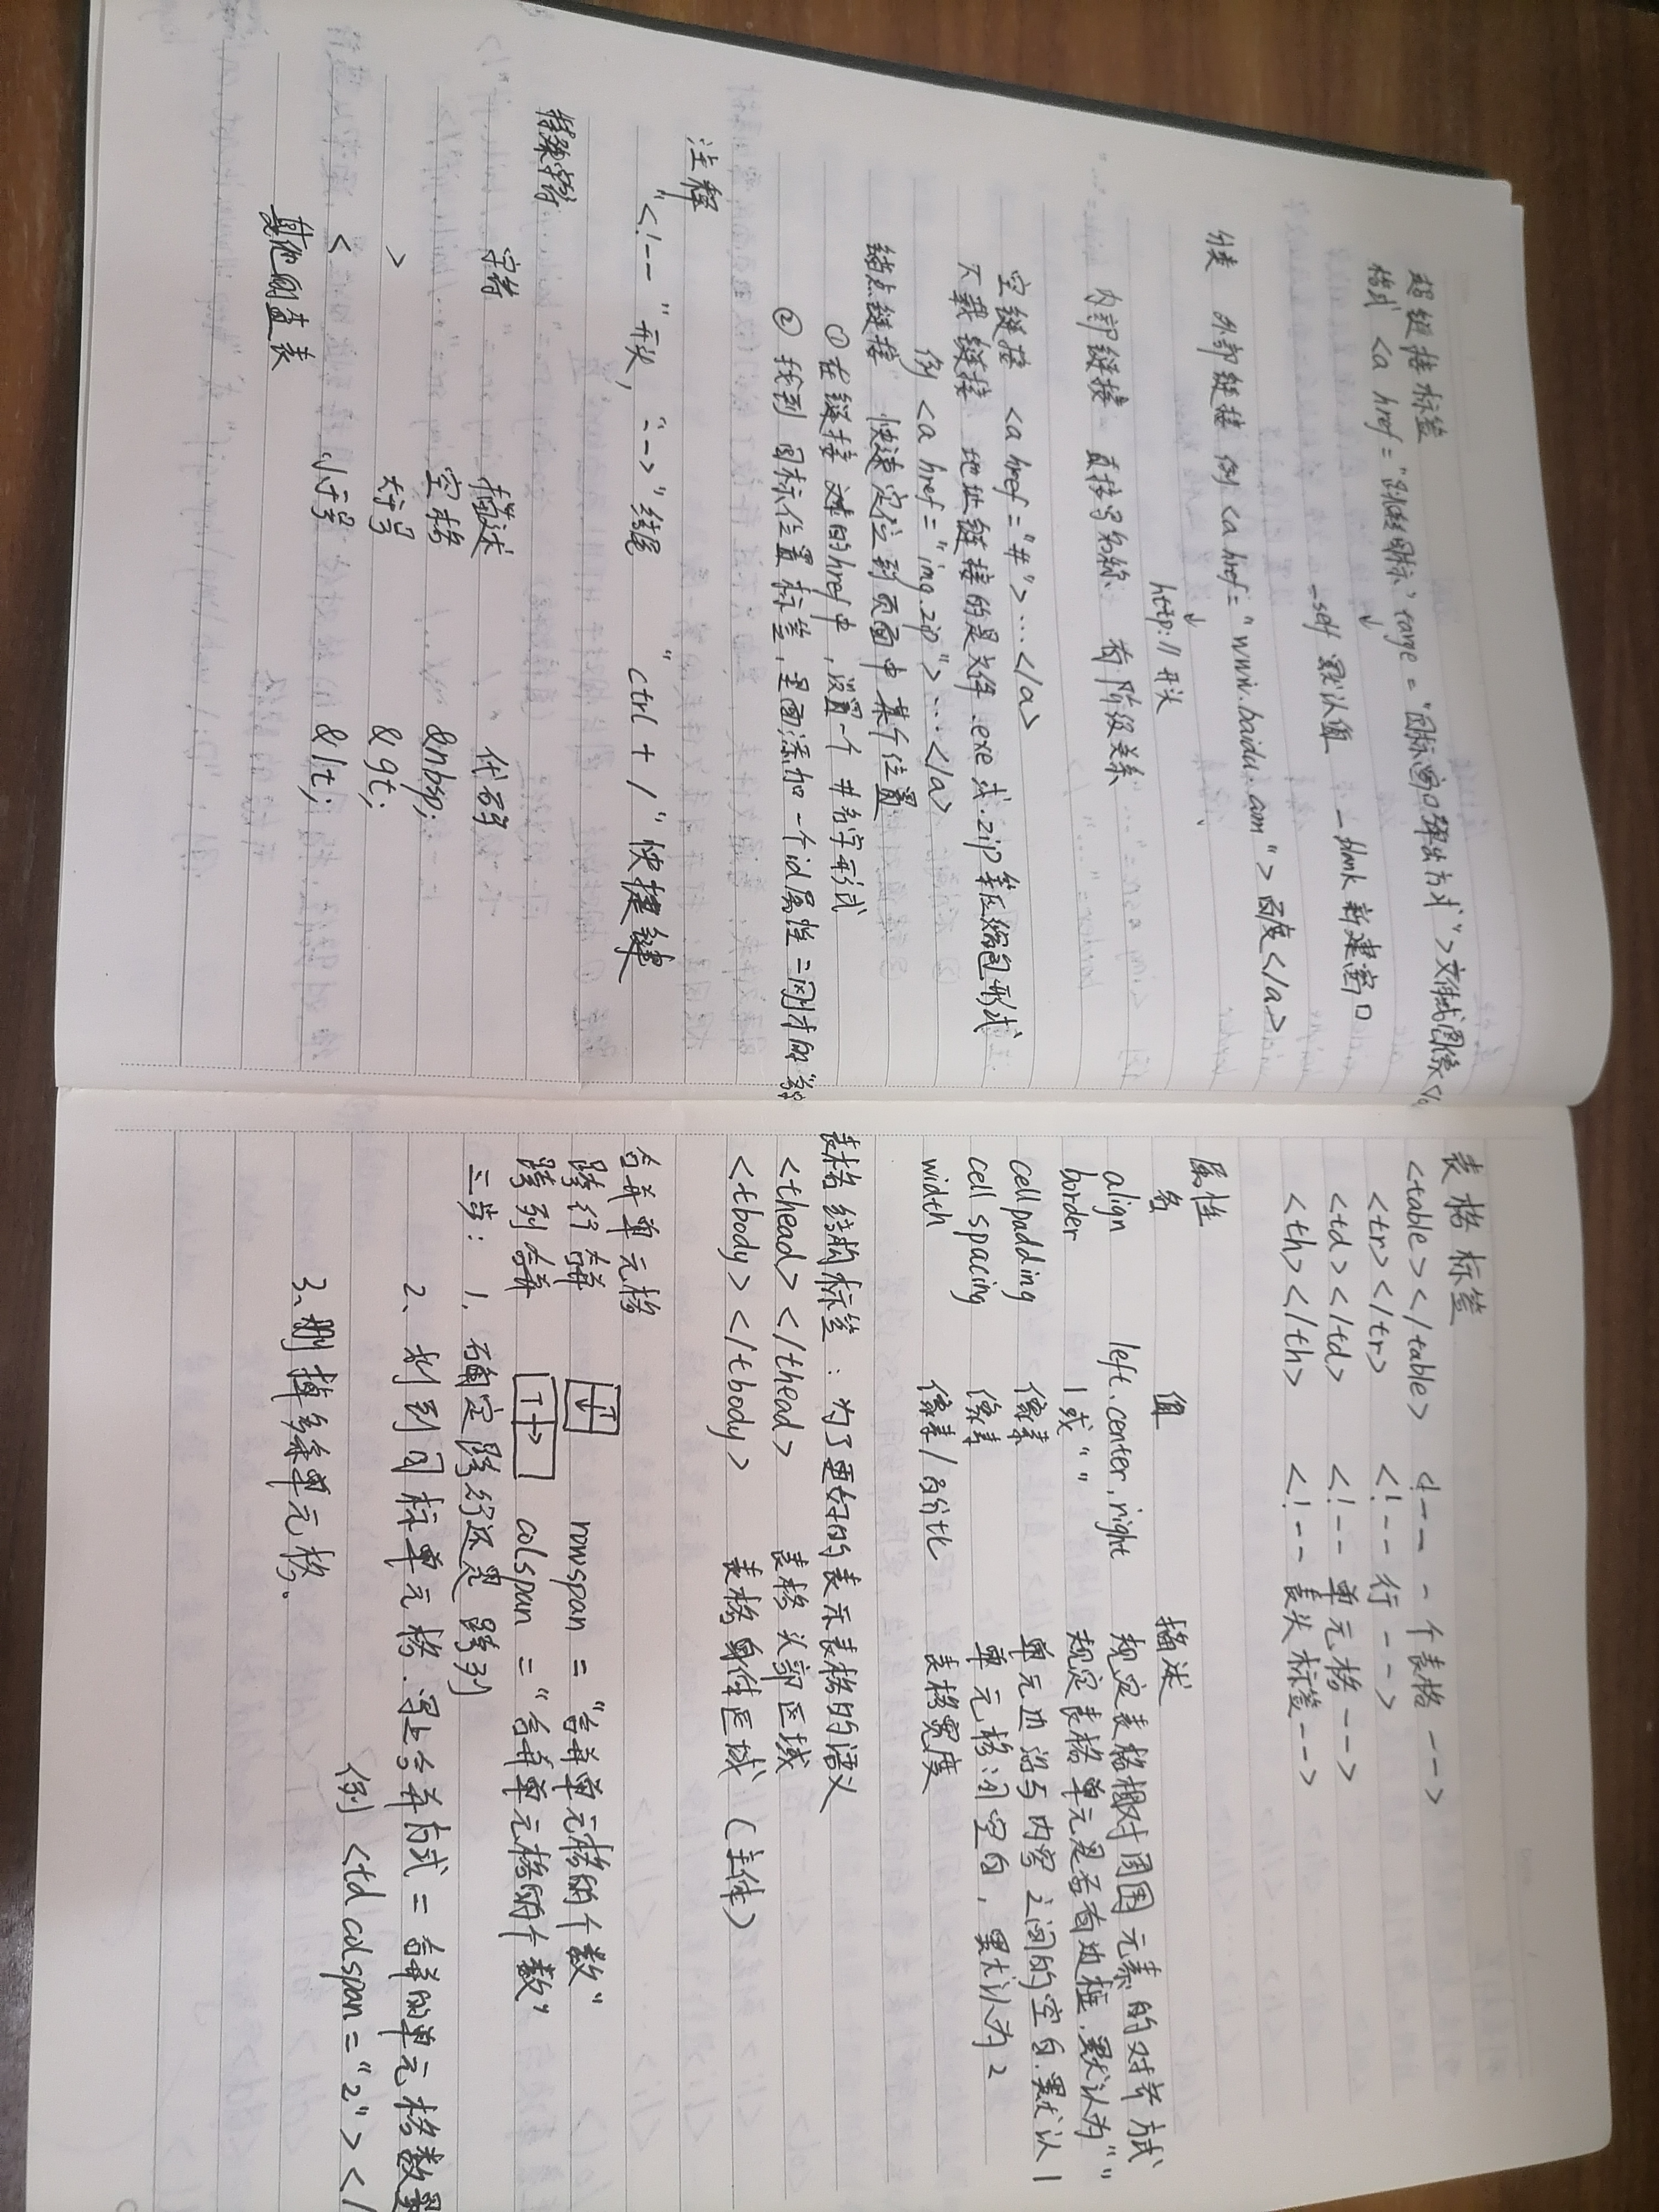 超链接标签
格式 <a href="跳转目标" target="目标窗口弹出方式">文本或图像</a
_self 默认值 _blank 新建窗口
分类 外部链接 例 <a href="www.baidu.com">百度</a>
http:// 开头
内部链接 直接写名称 有阶级关系
空链接 <a href="#">...</a>
下载链接 地址链接的是文件 .exe 或 .zip 等压缩包形式
例 <a href="img.zip">...</a>
锚点链接 快速定位到页面中某个位置
① 在链接文本的href中,设置一个 #名字形式
② 找到目标位置标签,里面添加一个id属性=刚才的"名字
注释
"<!--"开头, "-->"结尾 "ctrl + /"快捷键
特殊字符
字符 描述 代码
空格 &nbsp;
> 大于号 &gt;
< 小于号 &lt;
其他则查表
表格标签
<table></table> <!-- 一个表格 -->
<tr></tr> <!-- 行 -->
<td></td> <!-- 单元格 -->
<th></th> <!-- 表头标签 -->
属性
名 值 描述
align left.center.right 规定表格相对周围元素的对齐方式
border 1或"" 规定表格单元是否有边框.默认为""
cellpadding 像素 单元边沿与内容之间的空白.默认1
cell spacing 像素 单元格间空白,默认为2
width 像素/百分比 表格宽度
表格结构标签:为了更好的表示表格的语义
<thead></thead> 表格头部区域
<tbody></tbody> 表格身体区域 (主体)
合并单元格
跨行合并 rowspan = "合并单元格的个数"
跨列合并 colspan = "合并单元格的个数"
三步: 1、确定跨行还是跨列
2、找到目标单元格.写上合并方式=合并的单元格数量
例 <td colspan="2"></
3、删掉多余单元格。